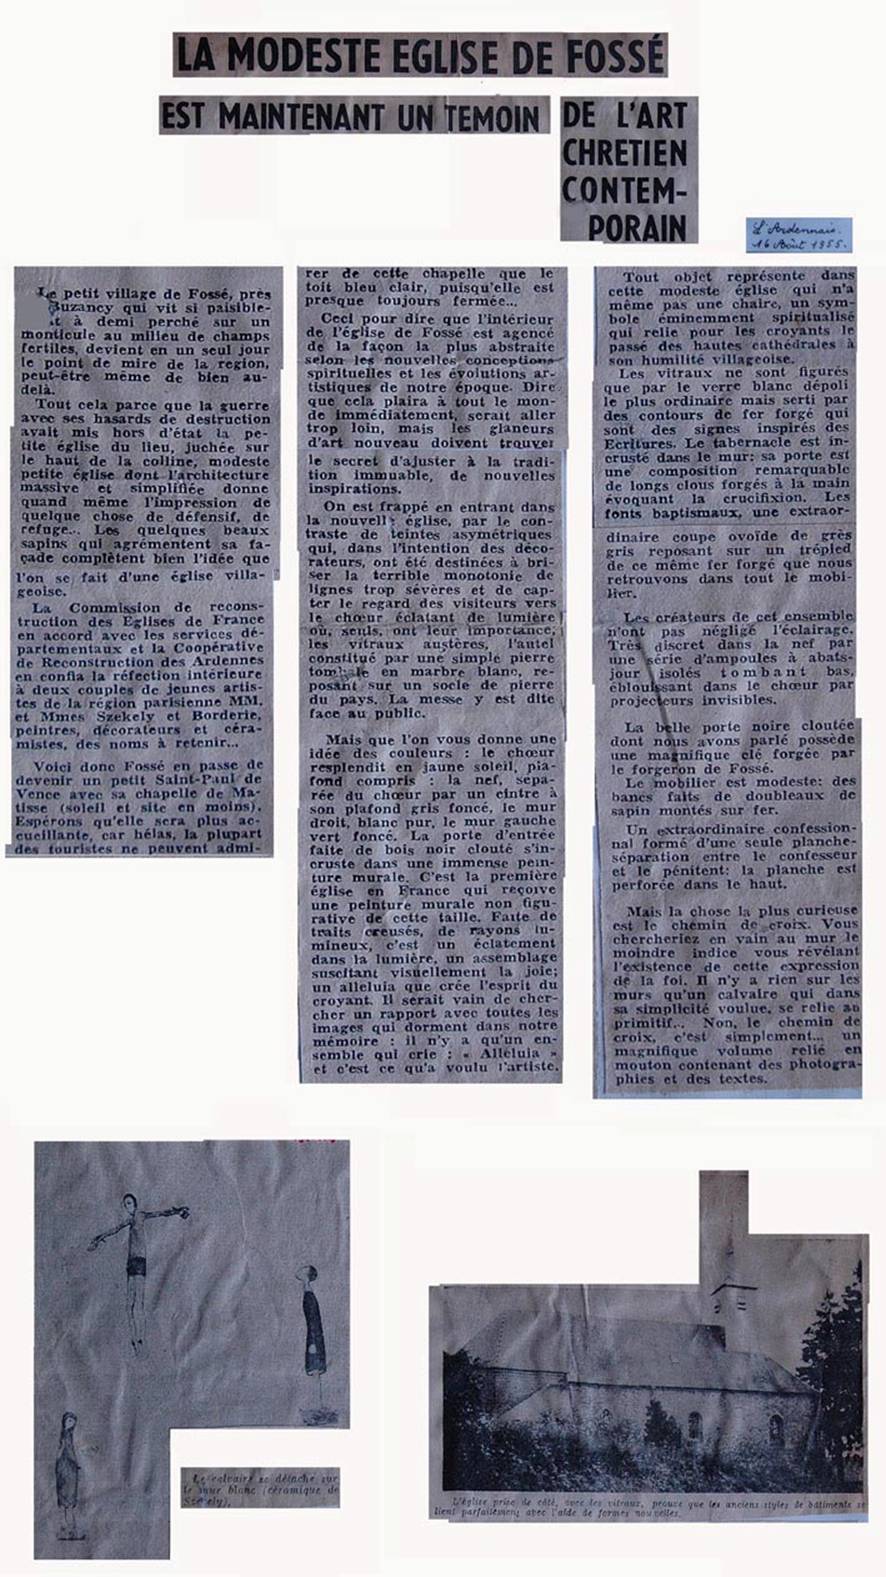 LA MODESTE EGLISE DE FOSSÉ
EST MAINTENANT UN TEMOIN
DE L'ART
CHRETIEN
CONTEM-
PORAIN
L'Ardennais.
16 Août 1955.
Le petit village de Fossé, près
Buzancy qui vit si paisible-
à demi perché sur un
monticule au milieu de champs
fertiles, devient en un seul jour
le point de mire de la région,
peut-être même de bien au-
delà.
Tout cela parce que la guerre
avec ses hasards de destruction
avait mis hors d'état la pe-
tite église du lieu, juchée sur
le haut de la colline, modeste
petite église dont l'architecture
massive et simplifiée donne
quand même l'impression de
quelque chose de défensif, de
refuge... Les quelques beaux
sapins qui agrémentent sa fa-
çade complètent bien l'idée que
l'on se fait d'une église villa-
geoise.
La Commission de recons-
truction des Eglises de France
en accord avec les services dé-
partementaux et la Coopérative
de Reconstruction des Ardennes
en confia la réfection intérieure
à deux couples de jeunes artis-
tes de la région parisienne MM.
et Mmes Szekely et Borderie,
peintres, décorateurs et céra-
mistes, des noms à retenir...
Voici donc Fossé en passe de
devenir un petit Saint-Paul de
Vence avec sa chapelle de Ma-
tisse (soleil et site en moins).
Espérons qu'elle sera plus ac-
cueillante, car hélas, la plupart
des touristes ne peuvent admi-
rer de cette chapelle que le
toit bleu clair, puisqu'elle est
presque toujours fermée...
Ceci pour dire que l'intérieur
de l'église de Fossé est agencé
de la façon la plus abstraite
selon les nouvelles conceptions
spirituelles et les évolutions ar-
tistiques de notre époque. Dire
que cela plaira à tout le mon-
de immédiatement, serait aller
trop loin, mais les glaneurs
d'art nouveau doivent trouver
le secret d'ajuster à la tradi-
tion immuable, de nouvelles
inspirations.
On est frappé en entrant dans
la nouvelle église, par le con-
traste de teintes asymétriques
qui, dans l'intention des déco-
rateurs, ont été destinées à bri-
ser la terrible monotonie de
lignes trop sévères et de cap-
ter le regard des visiteurs vers
le chœur éclatant de lumière
où, seuls, ont leur importance,
les vitraux austères, l'autel
constitué par une simple pierre
tombale en marbre blanc, re-
posant sur un socle de pierre
du pays. La messe y est dite
face au public.
Mais que l'on vous donne une
idée des couleurs : le chœur
resplendit en jaune soleil, pla-
fond compris : la nef, sépa-
rée du chœur par un cintre à
son plafond gris foncé, le mur
droit, blanc pur, le mur gauche
vert foncé. La porte d'entrée
faite de bois noir clouté s'in-
cruste dans une immense pein-
ture murale. C'est la première
église en France qui reçoive
une peinture murale non figu-
rative de cette taille. Faite de
traits creusés, de rayons lu-
mineux, c'est un éclatement
dans la lumière, un assemblage
suscitant visuellement la joie;
un alleluia que crée l'esprit du
croyant. Il serait vain de cher-
cher un rapport avec toutes les
images qui dorment dans notre
mémoire : il n'y a qu'un en-
semble qui crie : « Alleluia »
et c'est ce qu'a voulu l'artiste.
Tout objet représente dans
cette modeste église qui n'a
même pas une chaire, un sym-
bole éminemment spiritualisé
qui relie pour les croyants le
passé des hautes cathédrales à
son humilité villageoise.
Les vitraux ne sont figurés
que par le verre blanc dépoli
le plus ordinaire mais serti par
des contours de fer forgé qui
sont des signes inspirés des
Ecritures. Le tabernacle est in-
crusté dans le mur: sa porte est
une composition remarquable
de longs clous forgés à la main
évoquant la crucifixion. Les
fonts baptismaux, une extraor-
dinaire coupe ovoïde de grès
gris reposant sur un trépied
de ce même fer forgé que nous
retrouvons dans tout le mobi-
lier.
Les créateurs de cet ensemble
n'ont pas négligé l'éclairage.
Très discret dans la nef par
une série d'ampoules à abats-
jour isolés tombant bas,
éblouissant dans le chœur par
projecteurs invisibles.
La belle porte noire cloutée
dont nous avons parlé possède
une magnifique clé forgée par
le forgeron de Fossé.
Le mobilier est modeste: des
bancs faits de doubleaux de
sapin montés sur fer.
Un extraordinaire confession-
nal formé d'une seule planche-
séparation entre le confesseur
et le pénitent: la planche est
perforée dans le haut.
Mais la chose la plus curieuse
est le chemin de croix. Vous
chercheriez en vain au mur le
moindre indice vous révélant
l'existence de cette expression
de la foi. Il n'y a rien sur les
murs qu'un calvaire qui dans
sa simplicité voulue, se relie au
primitif... Non, le chemin de
croix, c'est simplement... un
magnifique volume relié en
mouton contenant des photogra-
phies et des textes.
Le calvaire se détache sur
le mur blanc (céramique de
Szekely).
L'église prise de côté, avec les vitraux, prouve que les anciens styles de bâtiments se
lient parfaitement avec l'aide de formes nouvelles.